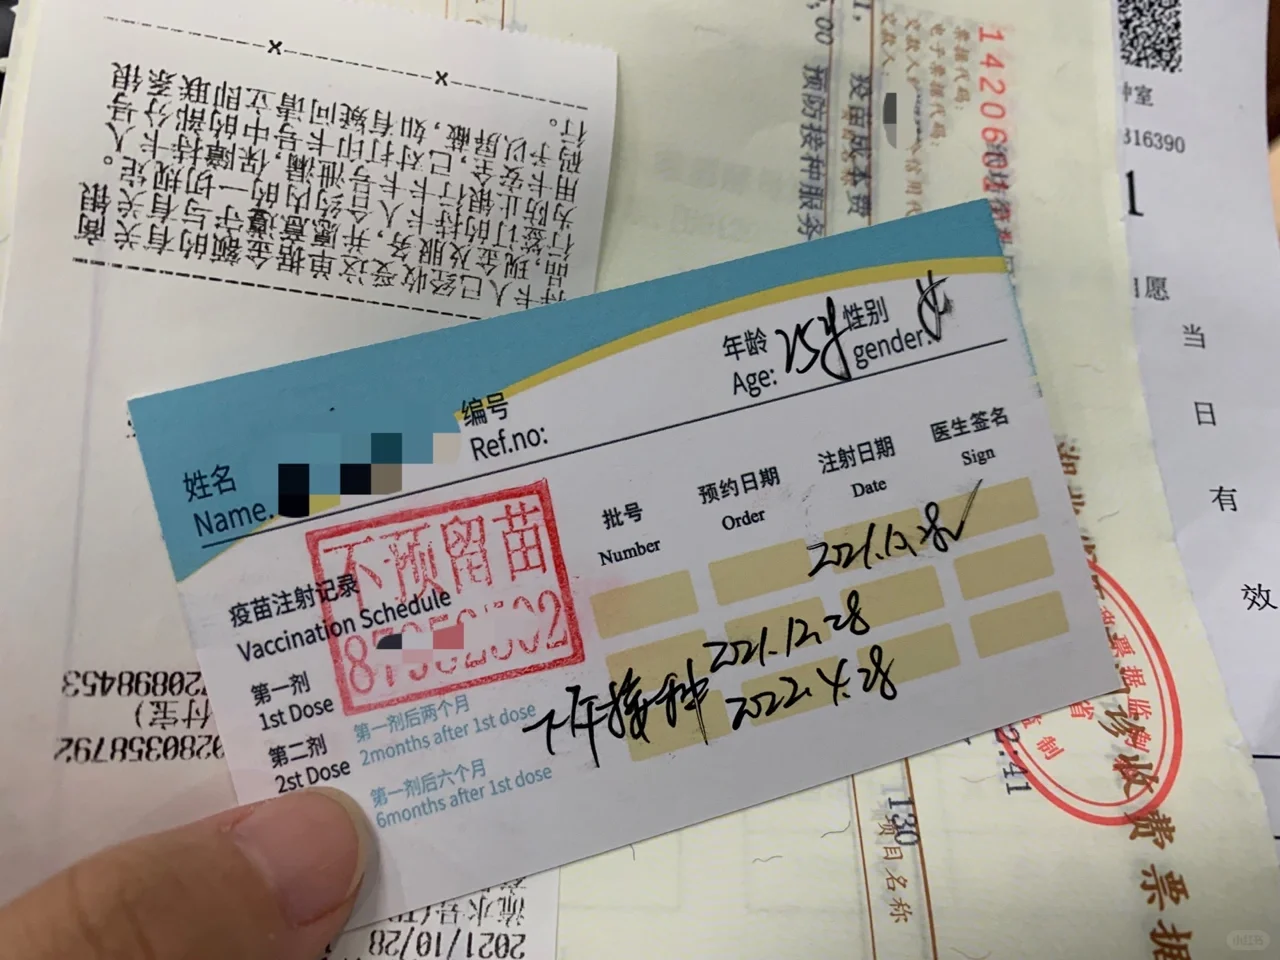 姓名
Name.
编号
Ref.no:
年龄
Age: 25岁
性别
gender: 女
不预留苗
疫苗注射记录
Vaccination Schedule
批号
Number
预约日期
Order
注射日期
Date
医生签名
Sign
第一剂
1st Dose
2021.10.28 ✓
第二剂
2st Dose
第一剂后两个月
2months after 1st dose
2021.12.28
第一剂后六个月
6months after 1st dose
下午接种
2022.4.28
持卡人已经收受这单据金额的有关商
品，现金及服务，并愿意遵守与有关银
行签订的持卡人合约内的一切规定。
为防止银行卡卡号泄漏，保障持卡人
用卡安全，已对打印卡号中的部分号
码予以屏蔽，如有疑问请立即联系银
行。
720898453
付宝)
0280358792
2021/10/28
142060
票据代码:
电子票据代码:
疫苗成本费
预防接种服务
130
项目名称
诊收费票据
2:41
种室
316390
1
愿
当
日
有
效
小红书